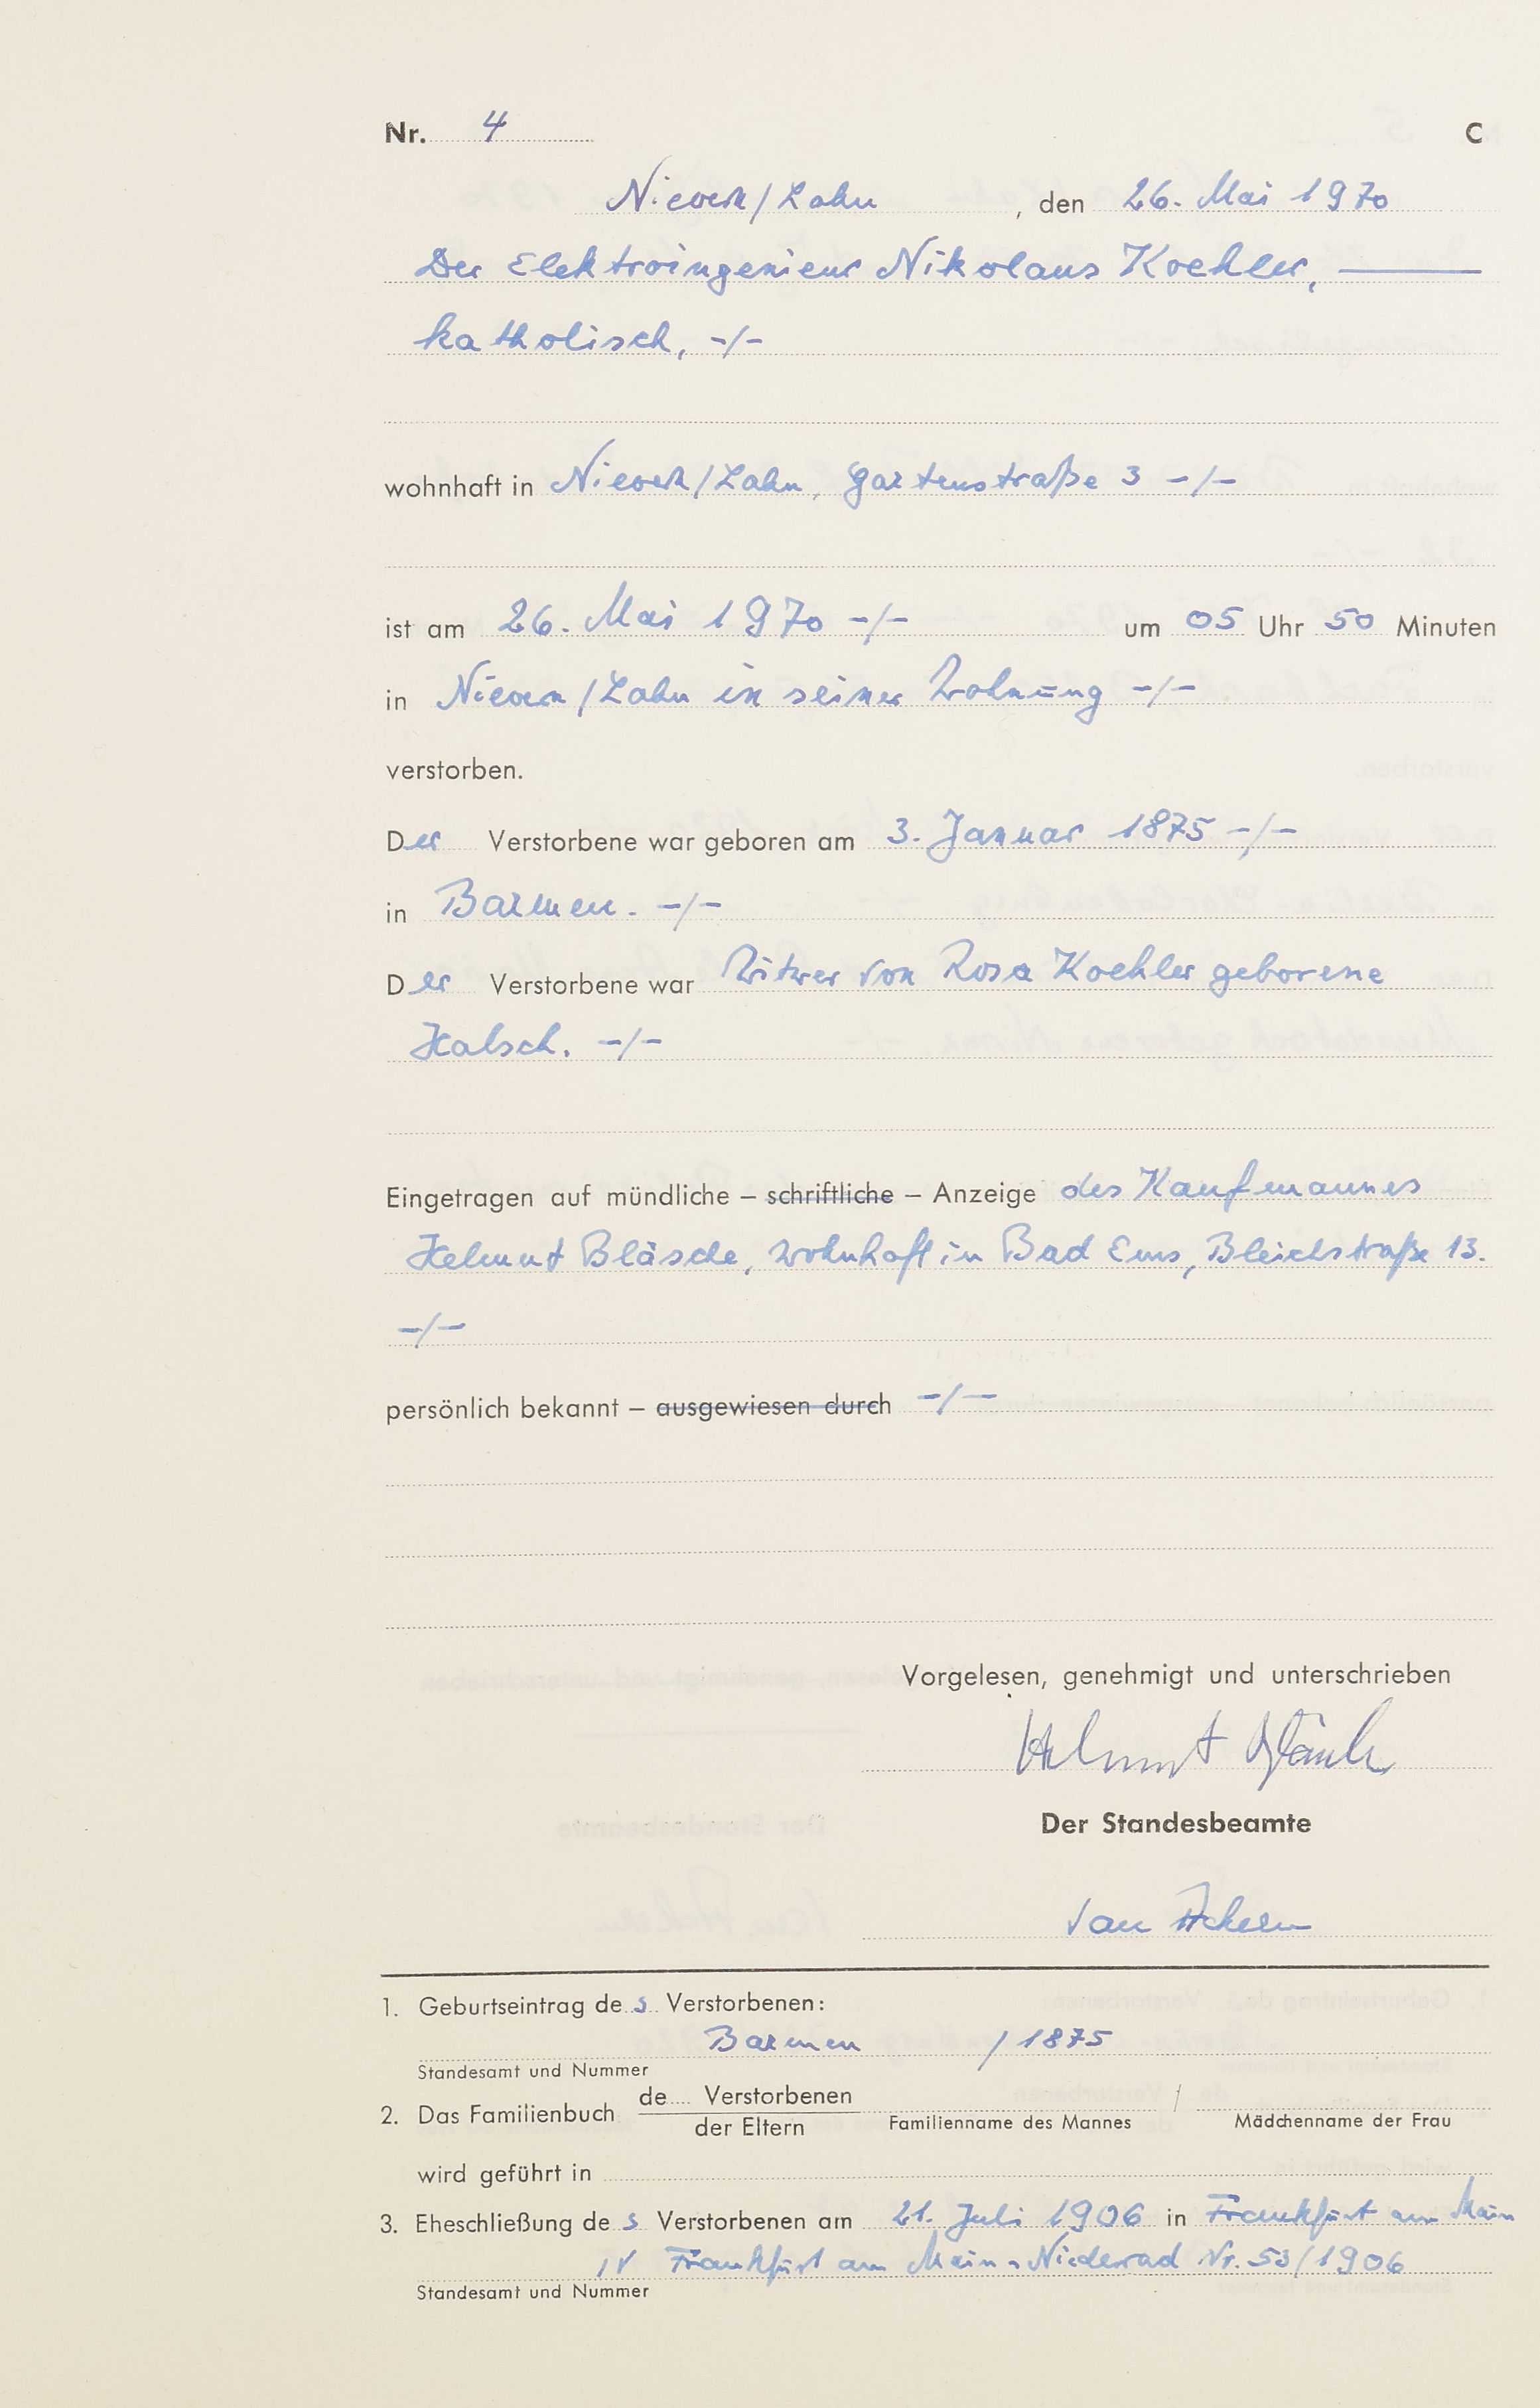 Nr. 4 C
Nievern/Lahn, den 26. Mai 1970
Der Elektroingenieur Nikolaus Koehler,
katholisch, -/-
wohnhaft in Nievern/Lahn, Gartenstraße 3 -/-
ist am 26. Mai 1970 -/- um 05 Uhr 50 Minuten
in Nievern/Lahn in seiner Wohnung -/-
verstorben.
Der Verstorbene war geboren am 3. Januar 1875 -/-
in Barmen. -/-
Der Verstorbene war Witwer von Rosa Koehler geborene
Halsch. -/-
Eingetragen auf mündliche – schriftliche – Anzeige des Kaufmannes
Helmut Bläsche, wohnhaft in Bad Ems, Bleichstraße 13.
-/-
persönlich bekannt – ausgewiesen durch -/-
Vorgelesen, genehmigt und unterschrieben
Helmut Bläsche
Der Standesbeamte
van
1. Geburtseintrag des Verstorbenen:
Barmen / 1875
Standesamt und Nummer
2. Das Familienbuch de Verstorbenen /
der Eltern Familienname des Mannes Mädchenname der Frau
wird geführt in
3. Eheschließung des Verstorbenen am 21. Juli 1906 in Frankfurt am Main
IV Frankfurt am Main-Niederrad Nr. 53/1906
Standesamt und Nummer